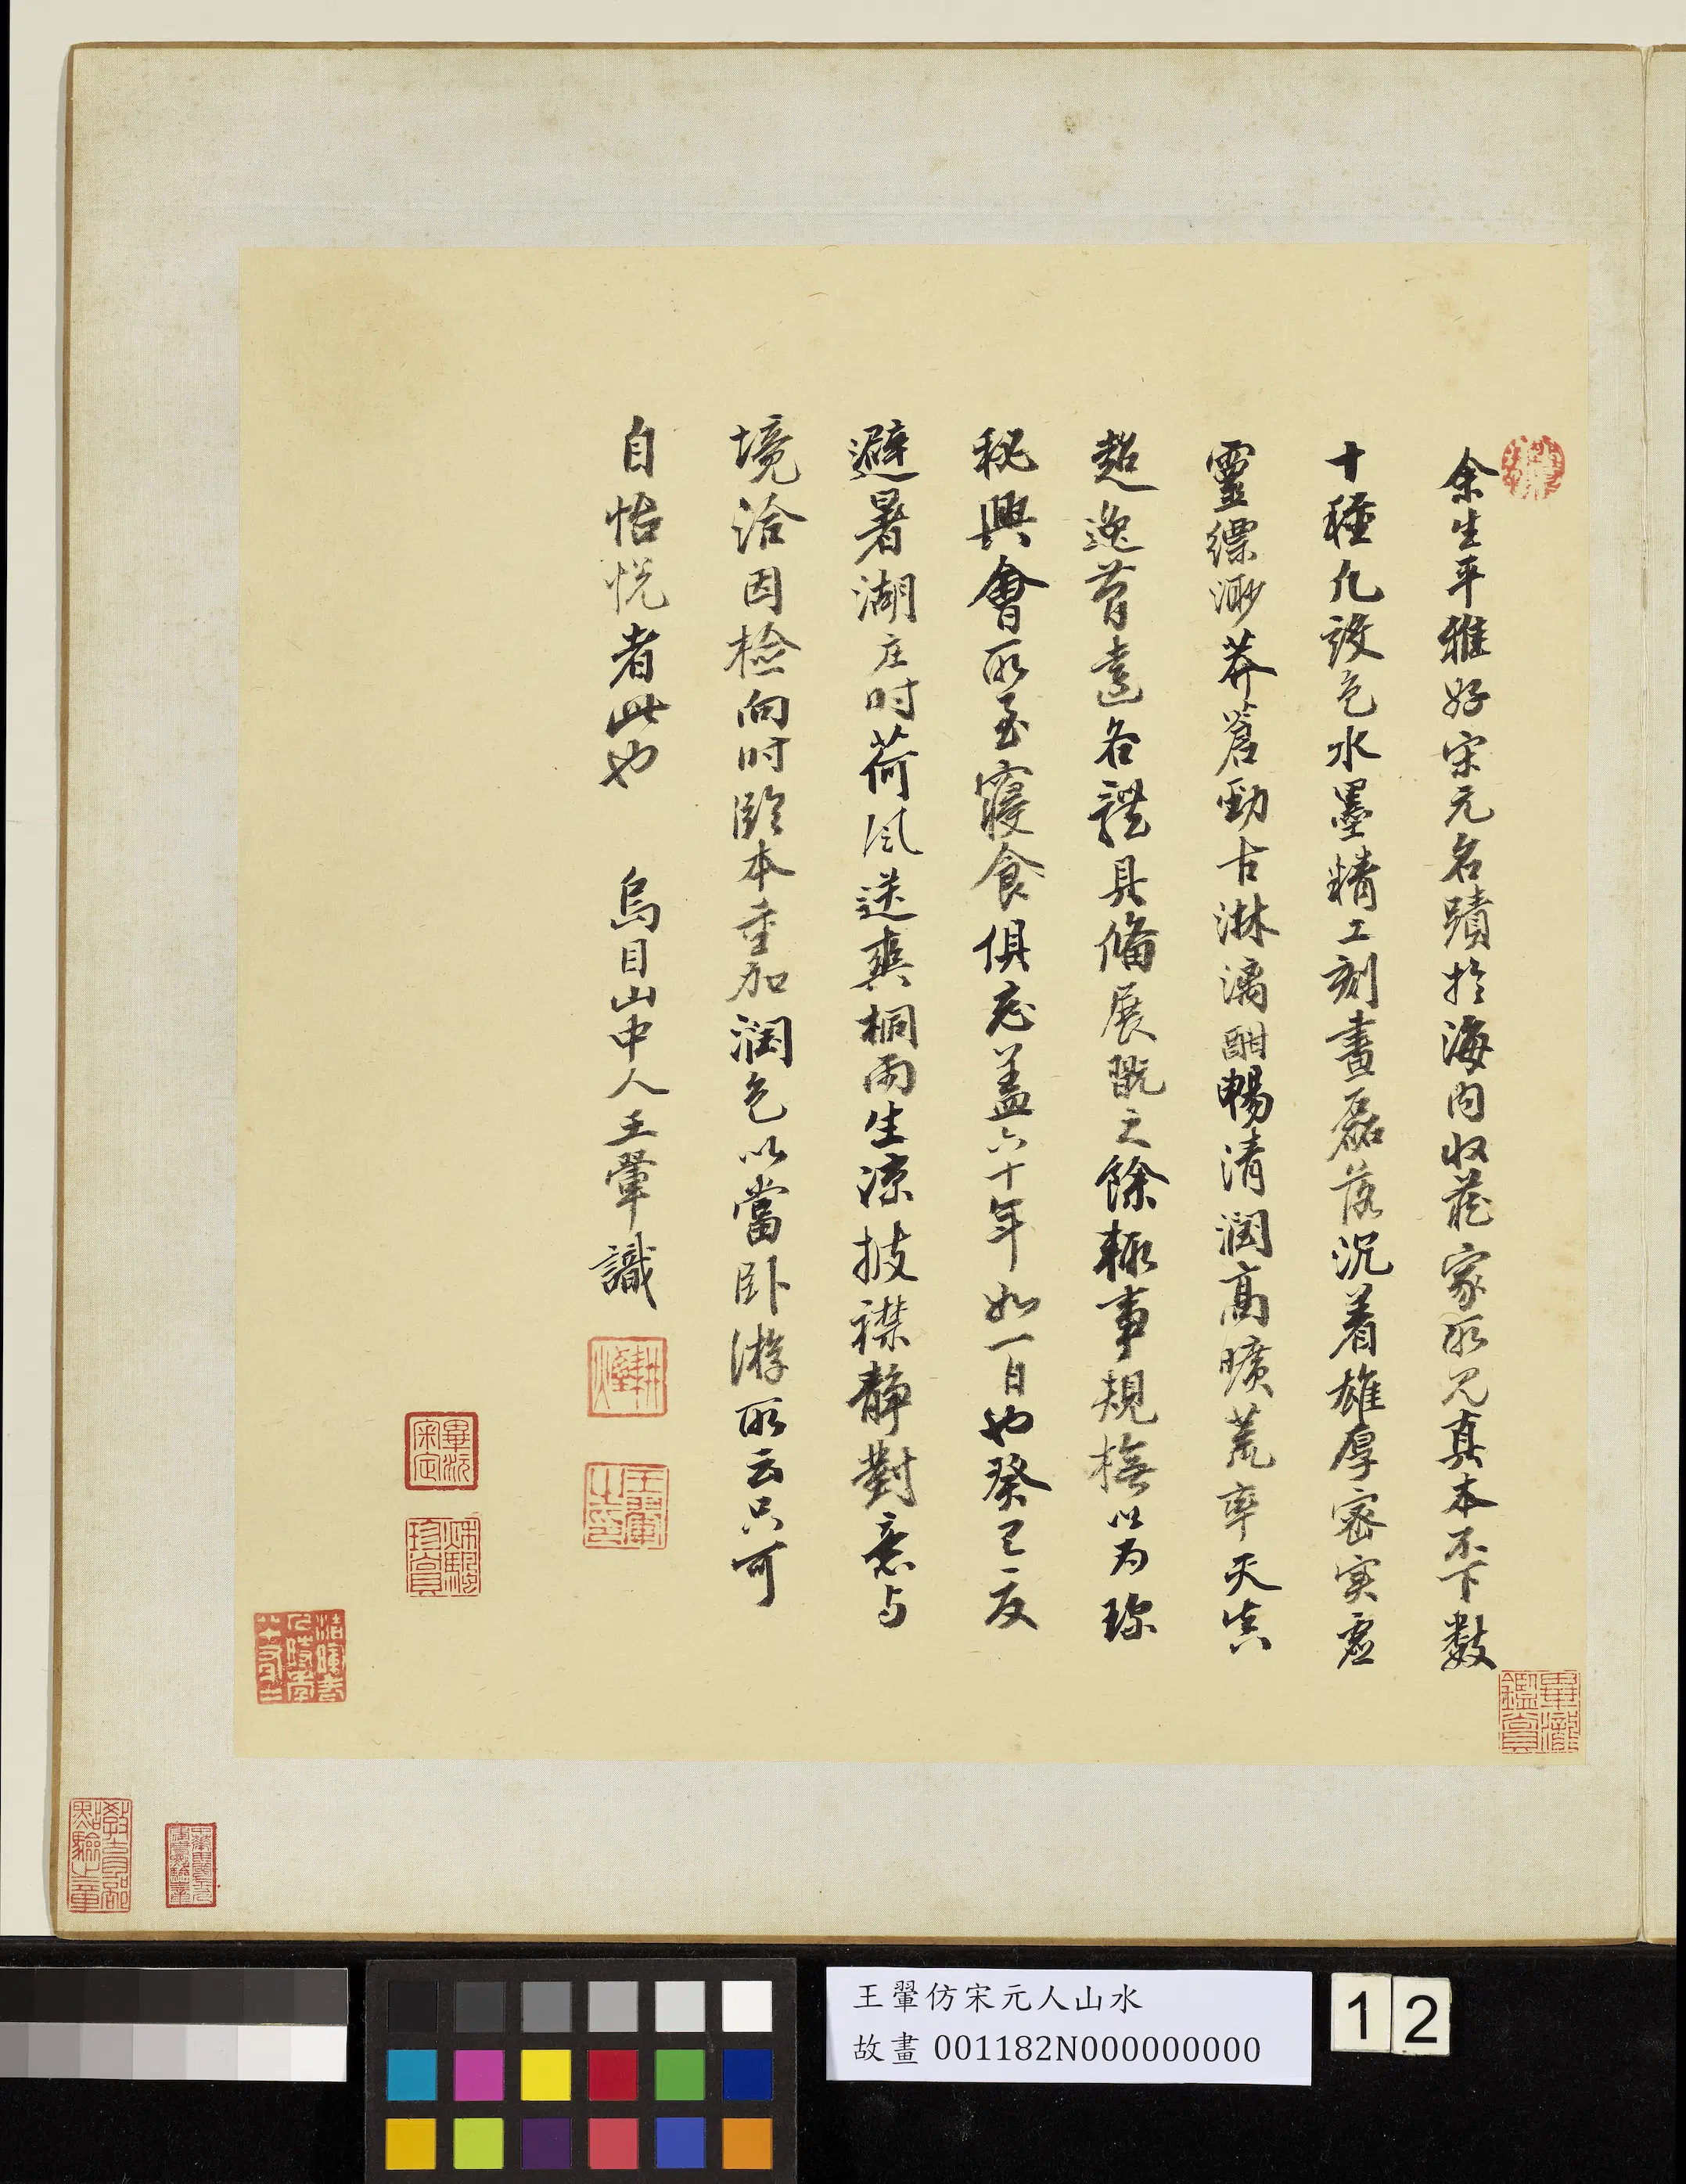 余生平雅好宋元名蹟於海内收藏家所見真本不下數
十種凡設色水墨精工刻畫磊落沉着雄厚密實虛
靈縹渺莽蒼勁古淋漓酣暢清潤高曠荒率天真
超逸蕭遠各體具備展翫之餘輒事規橅以為珎
秘興會所至寢食俱忘蓋六十年如一日也癸巳夏
避暑湖庄时荷風送爽桐雨生涼披襟靜對意与
境洽因檢向时臨本重加潤色以當卧游所云只可
自怡悅者此也 烏目山中人王翬識
耕煙
王翬之印
畢沅審定
珍賞
畢瀧鑑賞
教育部點驗之章
王翬仿宋元人山水
故畫 001182N000000000
12